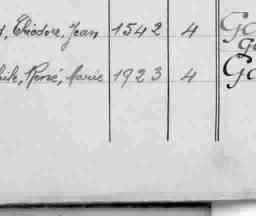 Théodore, Jean 1542 4 Ga
René, Marie 1923 4 Ga